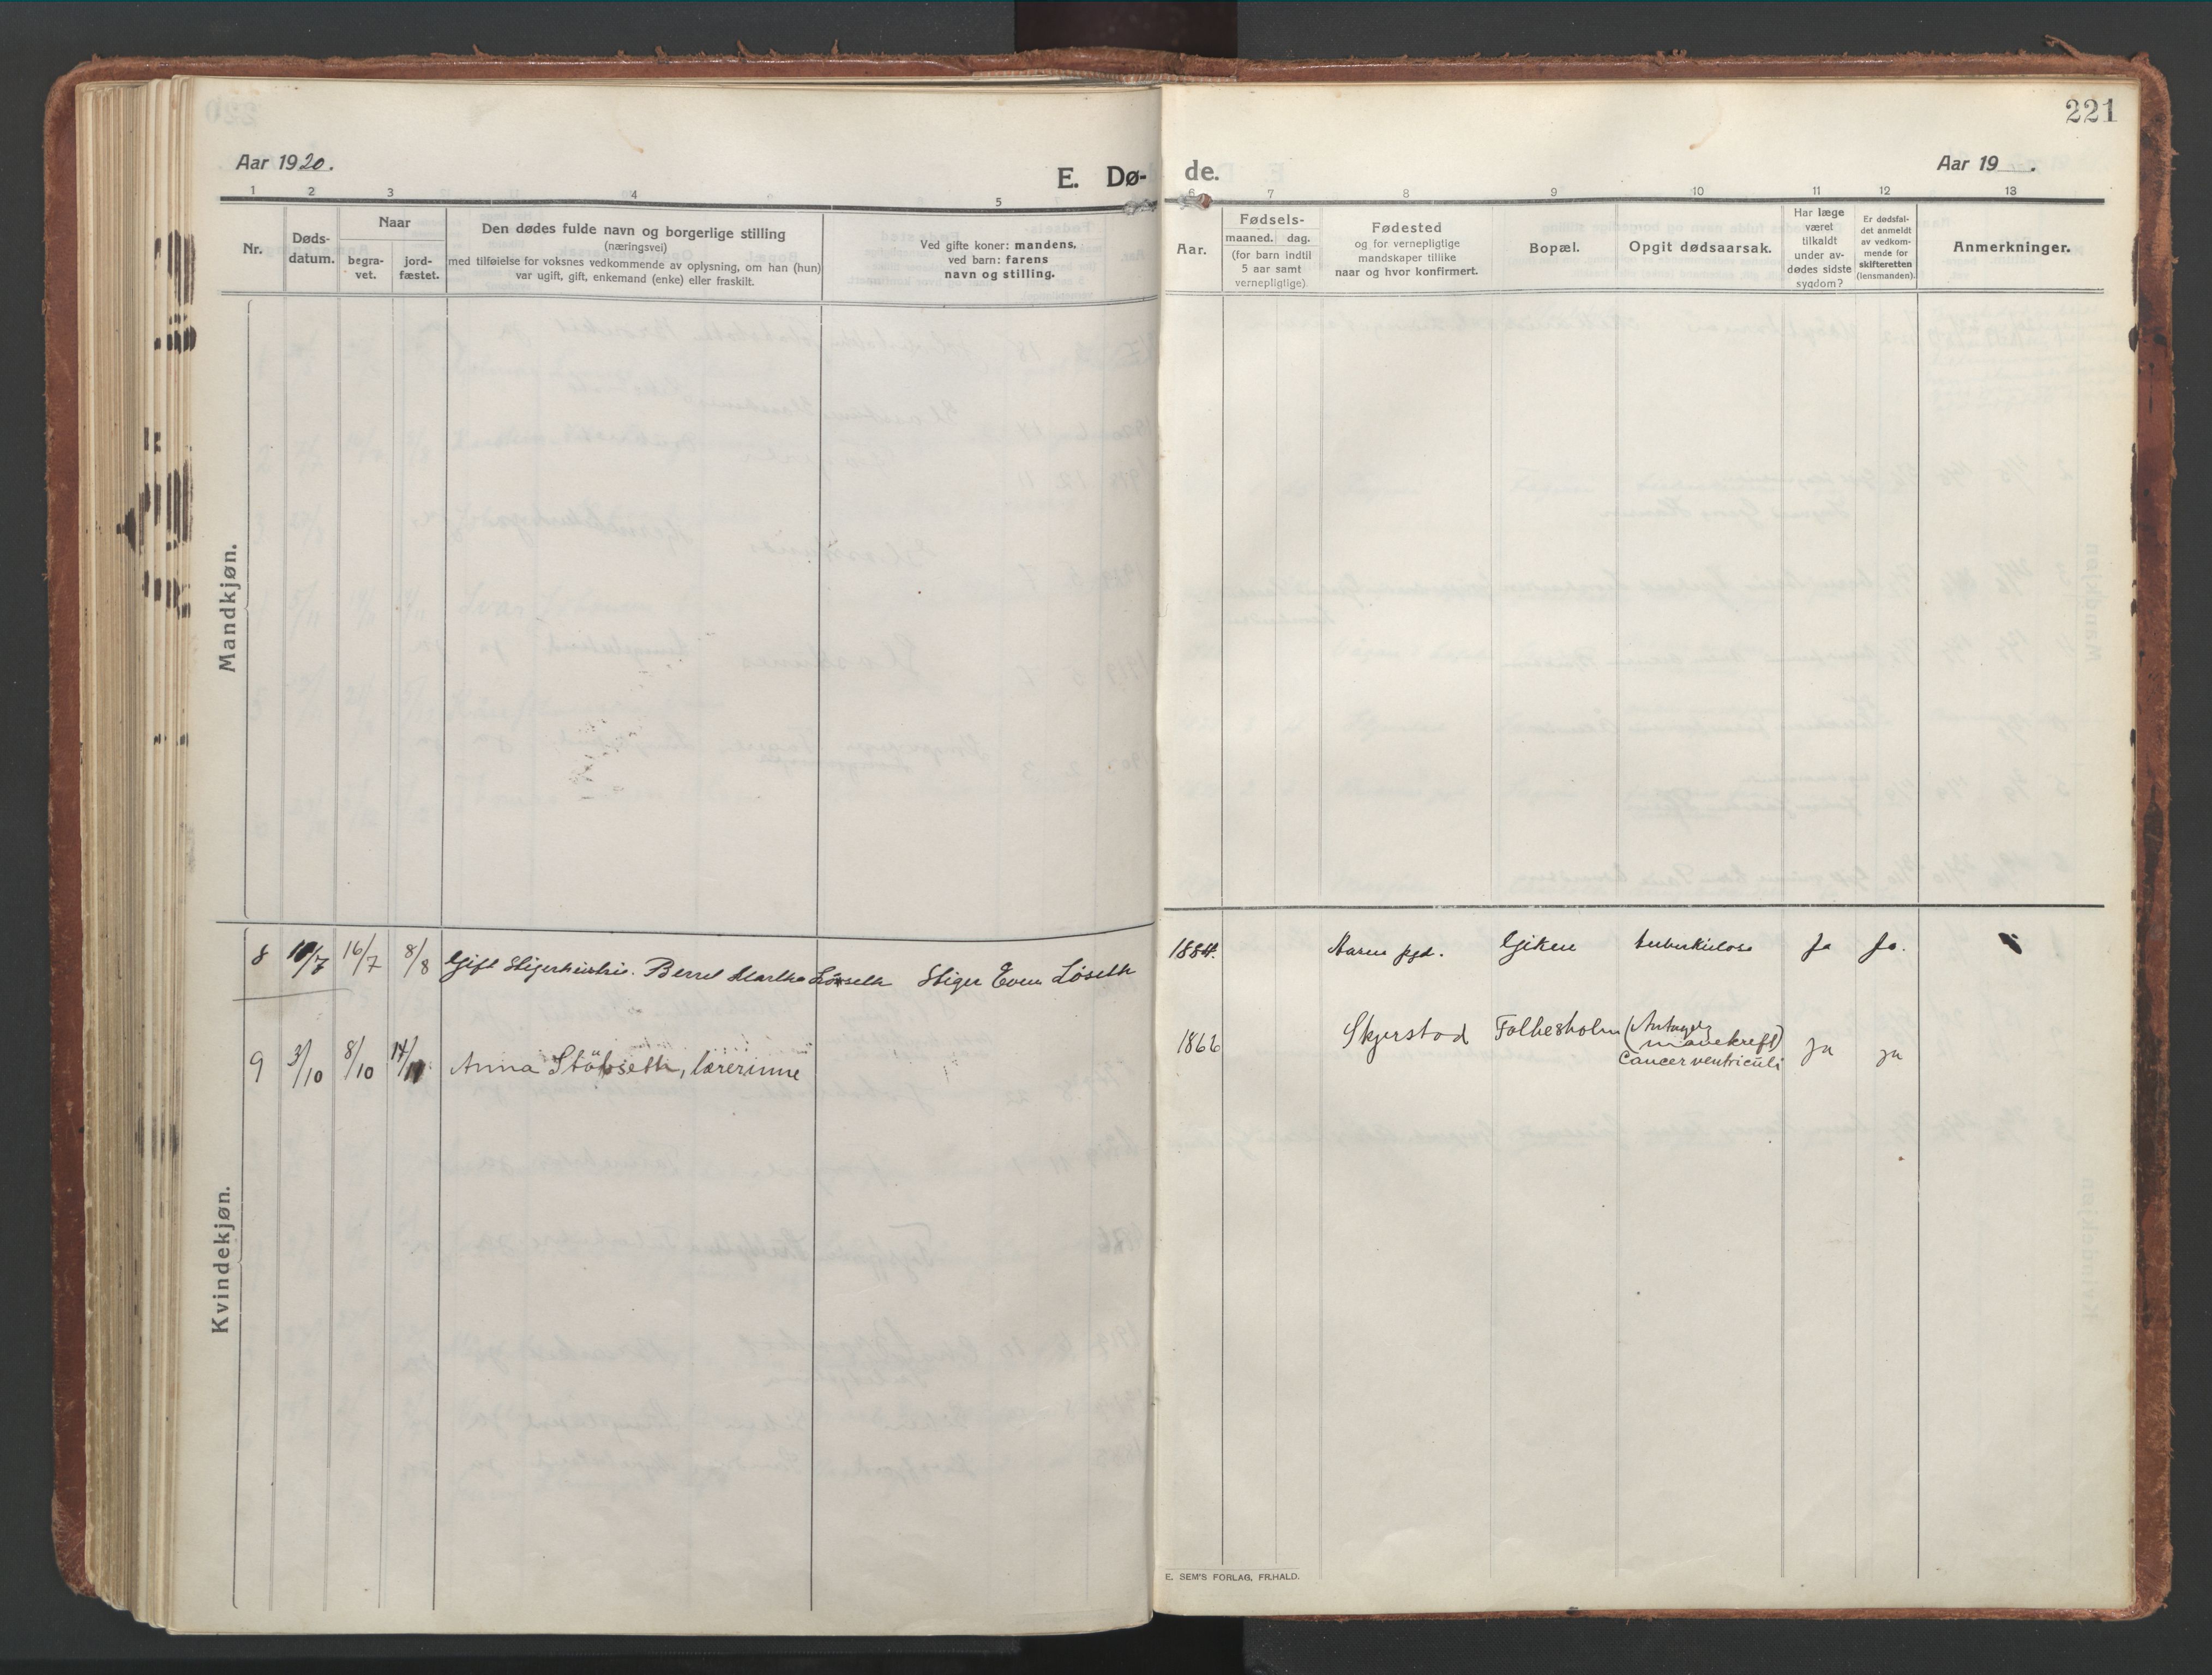 221
Aar 1920.
E. Dø-
de.
Aar 19 .
1 2 3 4 5 6 7 8 9 10 11 12 13
Nr.
Døds-
datum.
Naar
begra-
vet.
jord-
fæstet.
Den dødes fulde navn og borgerlige stilling
(næringsvei)
med tilføielse for voksnes vedkommende av oplysning, om han (hun)
var ugift, gift, enkemand (enke) eller fraskilt.
Ved gifte koner: mandens,
ved barn: farens
navn og stilling.
Aar.
Fødsels-
maaned. dag.
(for barn indtil
5 aar samt
vernepligtige)
Fødested
og for vernepligtige
mandskaper tillike
naar og hvor konfirmert.
Bopæl.
Opgit dødsaarsak.
Har læge
været
tilkaldt
under av-
dødes sidste
sygdom?
Er dødsfal-
det anmeldt
av vedkom-
mende for
skifteretten
(lensmanden).
Anmerkninger.
Mandkjøn.
Kvindekjøn.
8 10/7 16/7 8/8 Gift Stigerhustru. Berret Martha Løseth Stiger Even Løseth 1884. pgd. Giken tuberkulose Ja Ja.
9 3/10 8/10 14/11 Anna Störseth, lærerinne 1866 Skjerstad Folkesholm (Antagelig
mavekreft)
Cancer ventriculi ja ja
E. SEM'S FORLAG, FR.HALD.